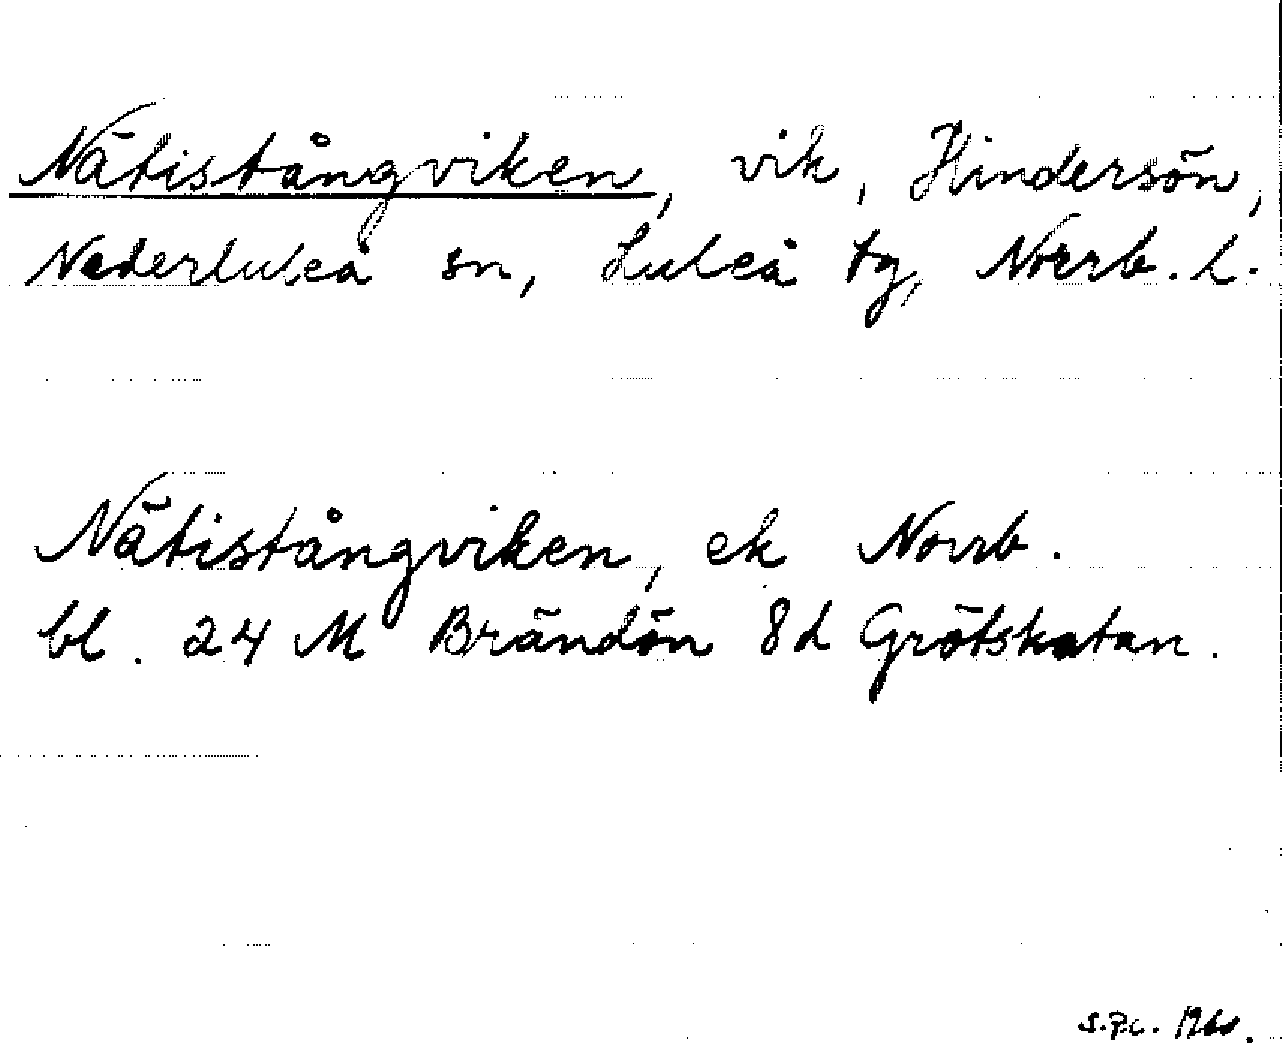 Nätistångviken, vik, Hindersön,
Nederluleå sn, Luleå tg, Norrb. l.
Nätistångviken, ek Norrb.
bl. 24 M Brändön 8d Grötskatan.
S.P.c. 1960.